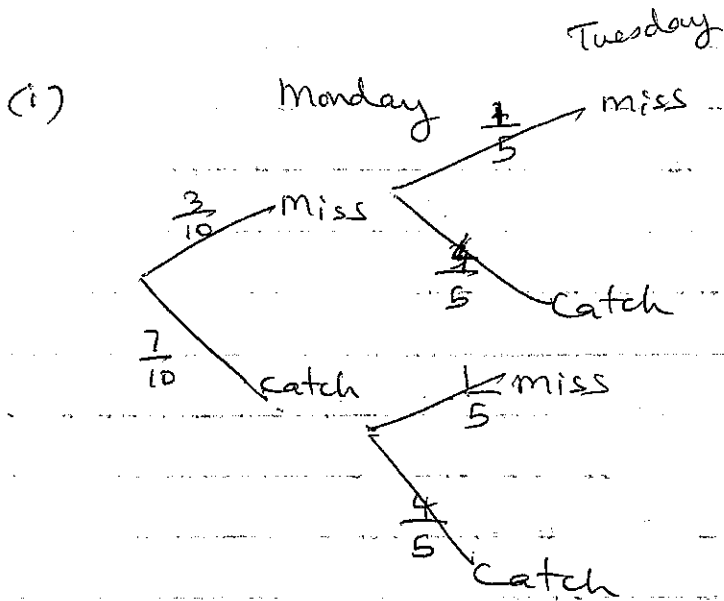 Tuesday
(i) Monday
1/5 miss
3/10 Miss
4/5 Catch
7/10 Catch
1/5 miss
4/5 Catch